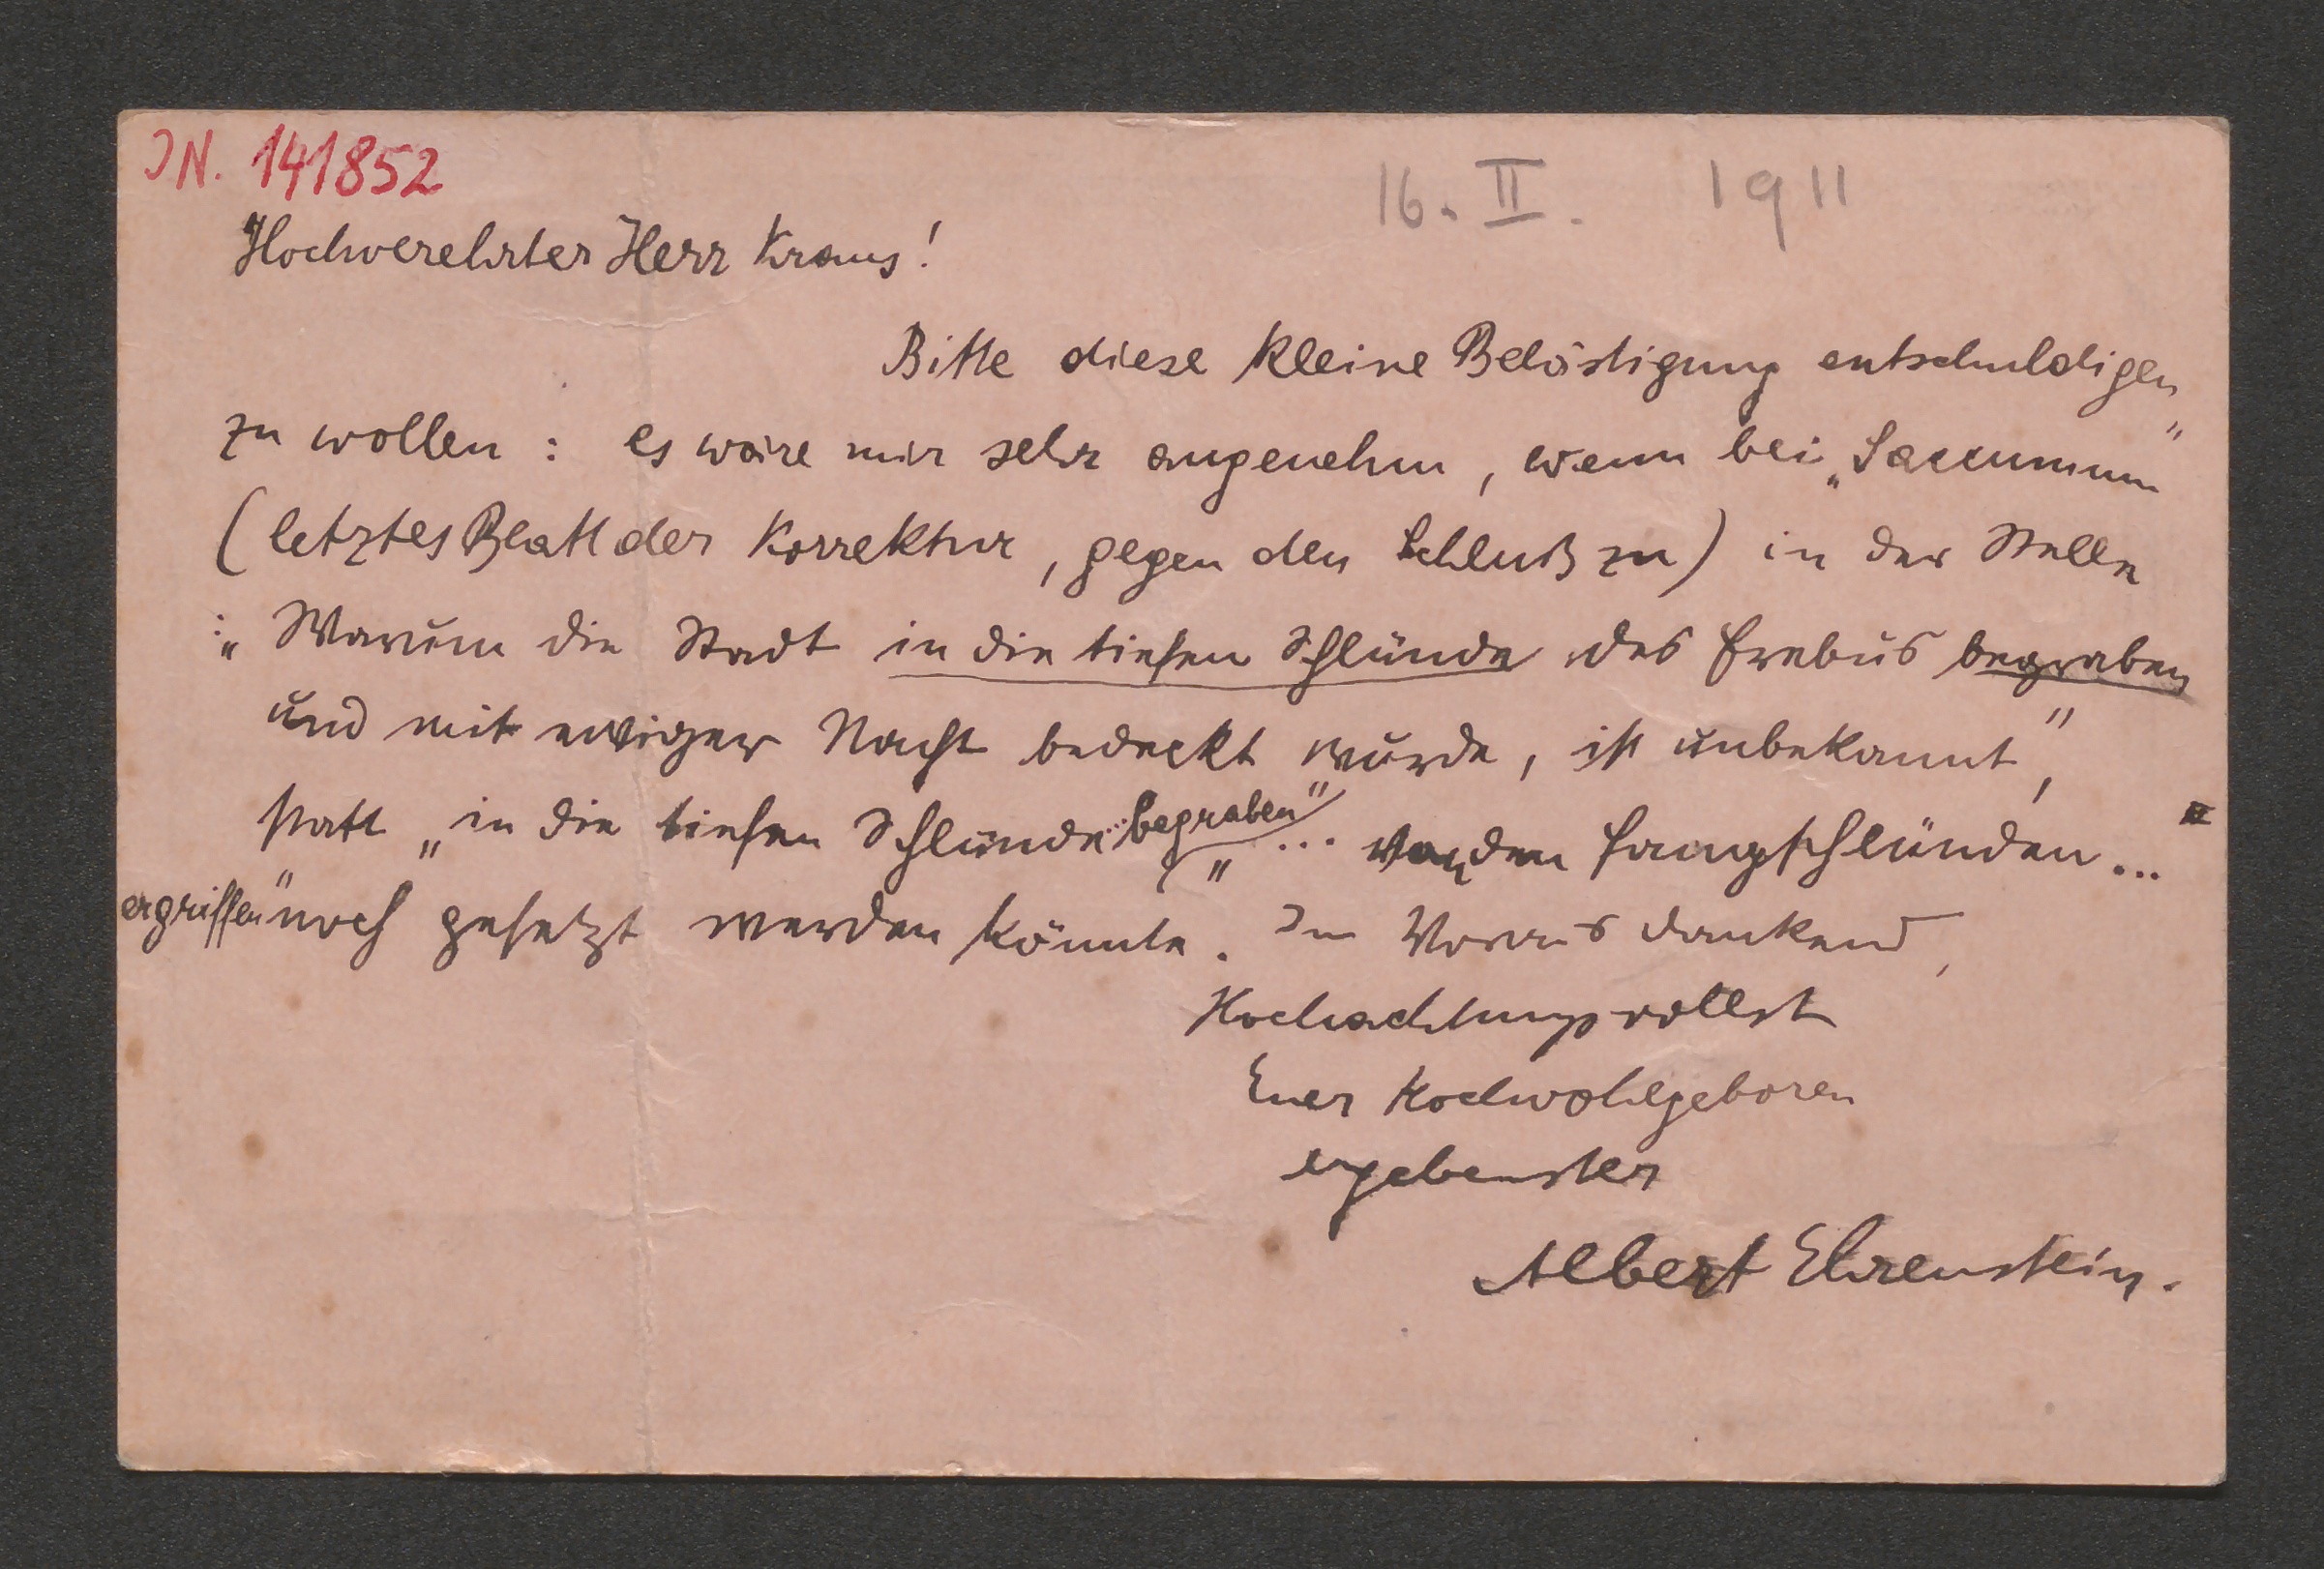 IN. 141852
16. II. 1911
Hochverehrter Herr Kraus!
Bitte diese kleine Belästigung entschuldigen
zu wollen: es wäre mir sehr angenehm, wenn bei „Saccumum“
(letztes Blatt der Korrektur, gegen den Schluß zu) in der Stelle
: „Warum die Stadt in die tiefen Schlünde des Erebus begraben
und mit ewiger Nacht bedeckt wurde, ist unbekannt“,
statt „in die tiefen Schlünde... begraben“ „... von den Fangschlünden...
ergriffen“ noch gesetzt werden könnte. Im Voraus dankend,
Hochachtungsvollst
Euer Hochwohlgeboren
ergebenster
Albert Ehrenstein.